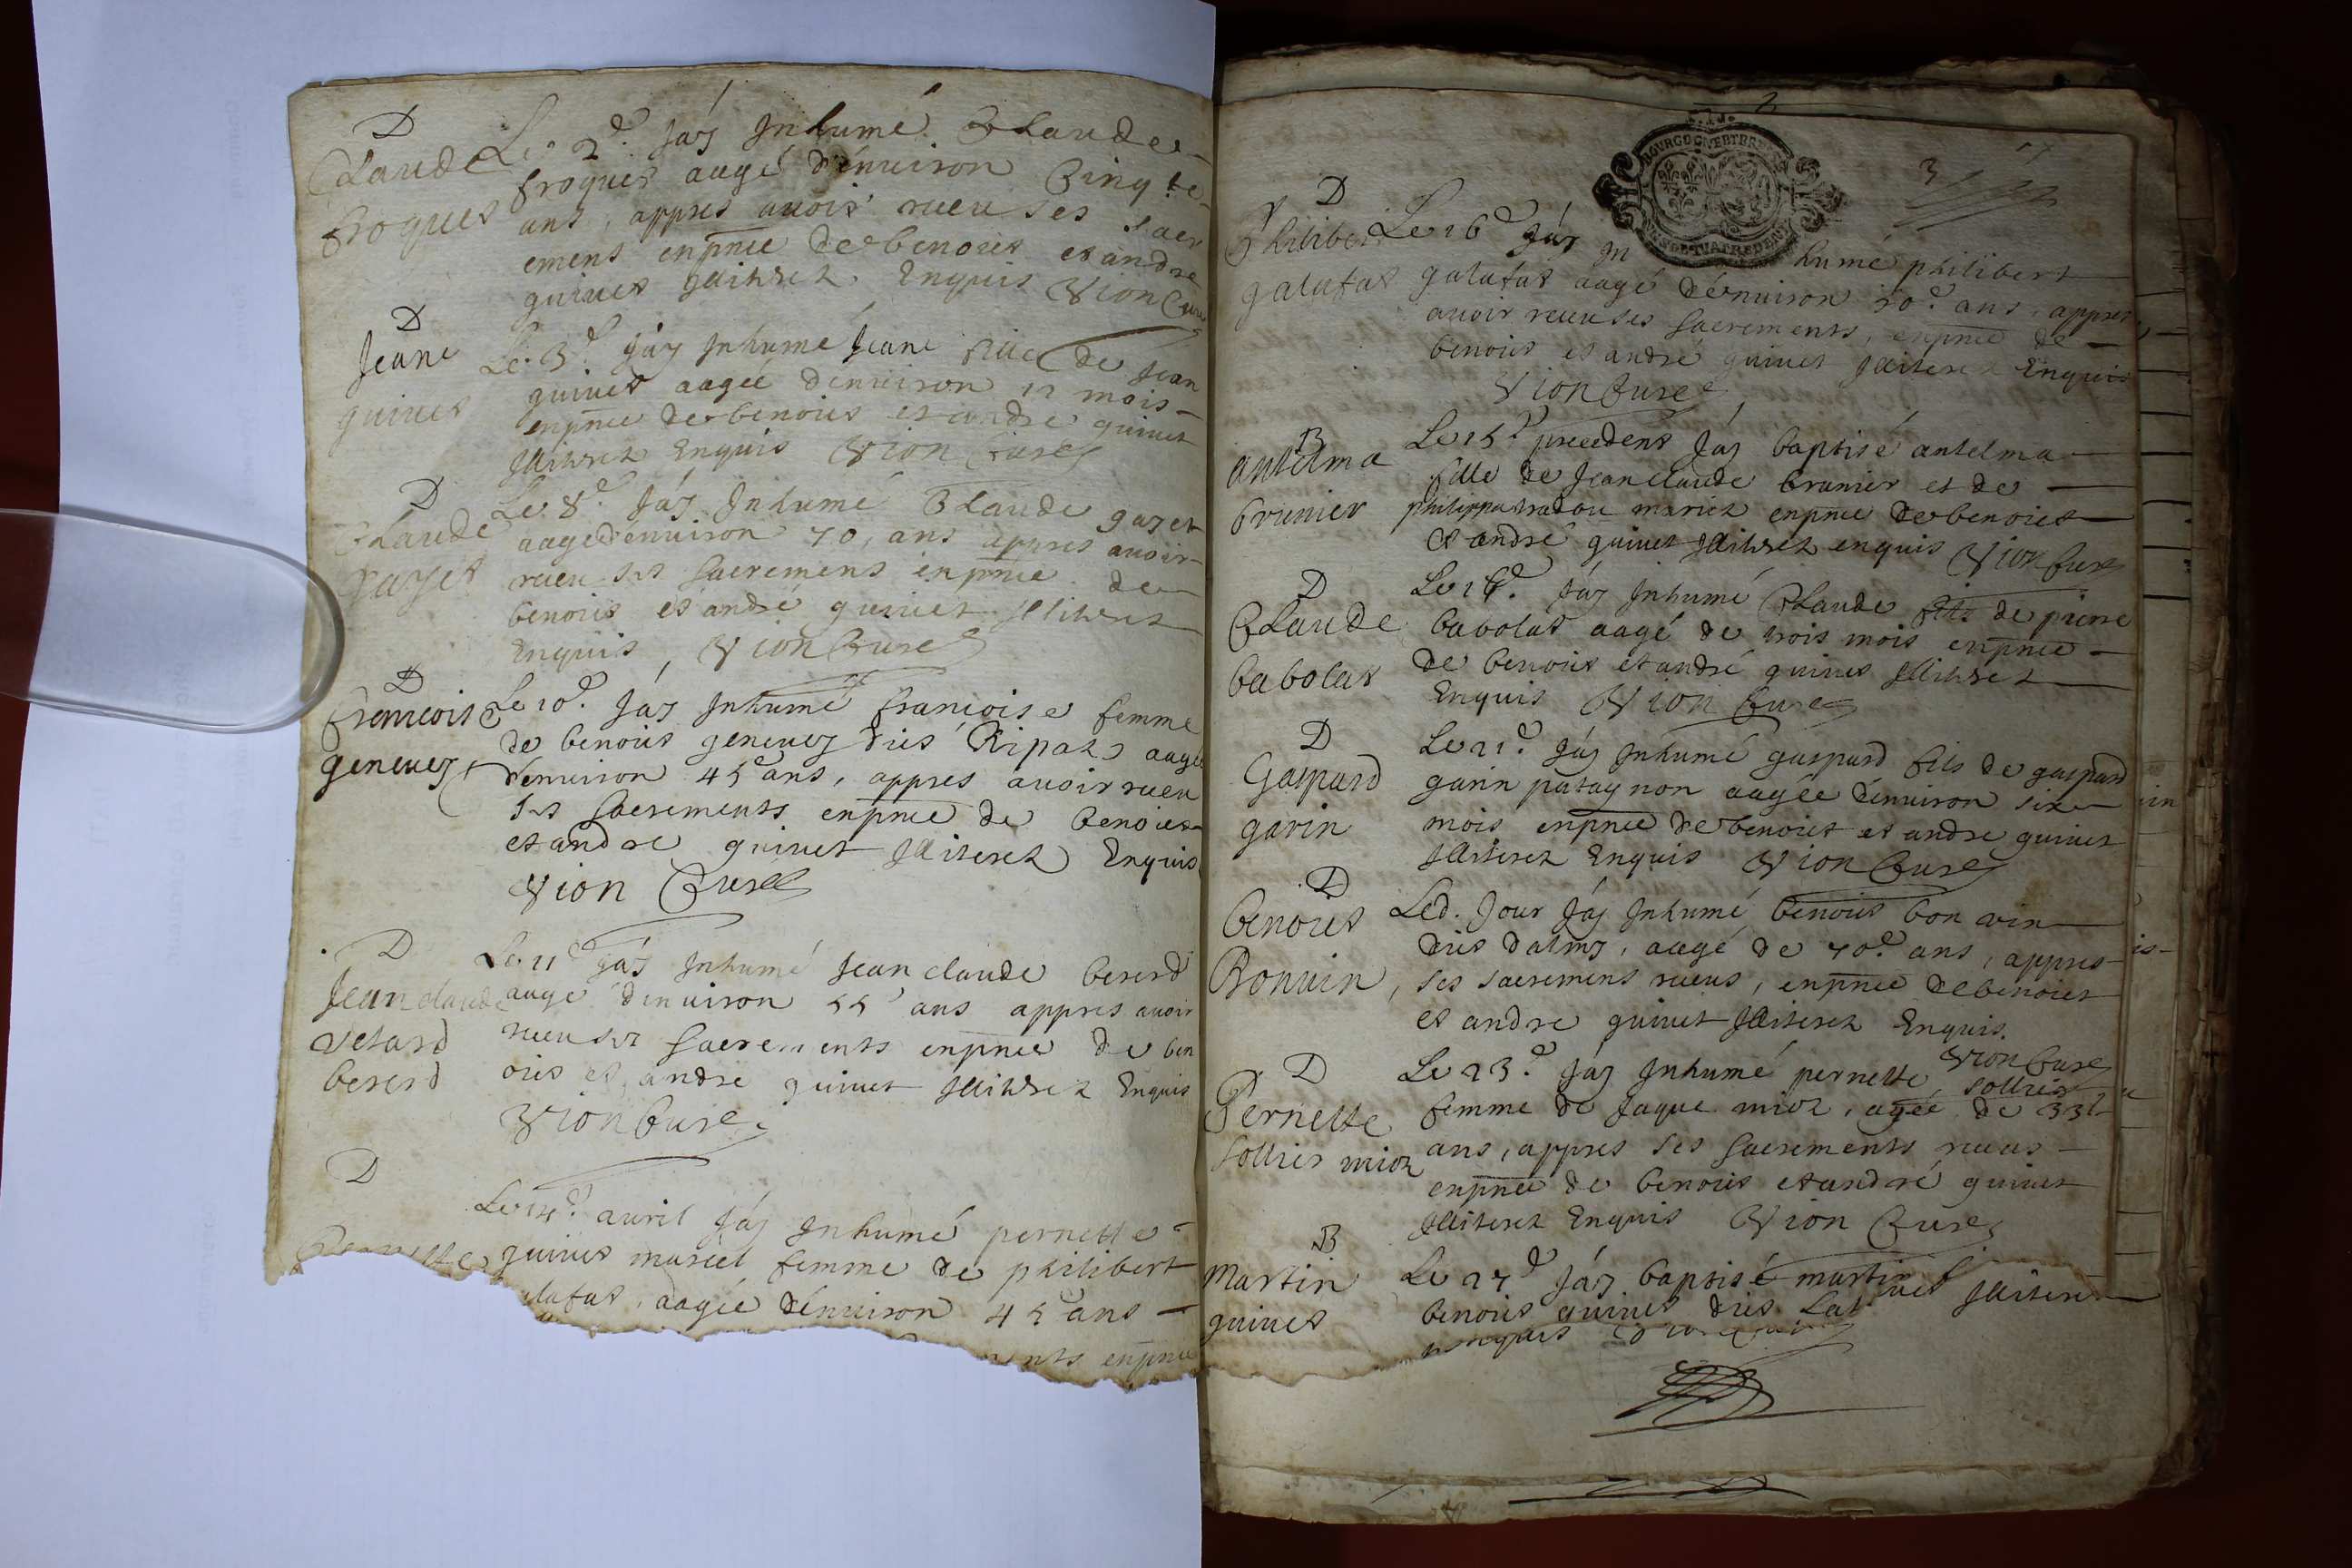 D
Claude
froques
Le 2e. jay Inhumé Claude
froques aagé d'enuiron Cinqte
ans, appres auoir receu ses sacr
emens enpnce de benoict et andre
guiuet Illiterez Enquis Vion Curé
D
Jeane
guiuet
Le 3e. jay Inhumé Jeane fille de Jean
guiuet aagée denuiron 12 mois
enpnce de benoict et andre guiuet
Illiterez Enquis Vion Curé
D
Claude
gayet
Le 8e. jay Inhumé Claude gayet
aagé denuiron 70, ans appres auoir
receu ses sacremens enpnce de
benoict et andré guiuet Illiterez
Enquis, Vion Curé
D
francoise
geneuey
Le 10e. jay Inhumé francoise femme
de benoict geneuey dict Ripaz aagée
denuiron 45 ans, appres auoir receu
ses sacrements enpnce de benoict
et andre guiuet Illiterez Enquis
Vion Curé
D
Jean claude
berard
Le 11e jay Inhumé Jean claude berard
aagé denuiron 55 ans appres auoir
receu ses sacrements enpnce de ben
oict et andre guiuet Illiterez Enquis
Vion Curé
D
Le 14e. auril jay Inhumé pernette
guiuet marcel femme de philibert
aagée denuiron 45 ans
enpnce
2
BOURGOGNE ET BRE
3
D
Philibert
galafat
Le 16e jay In humé philibert
galafat aagé denuiron 50e. ans, appres
auoir receu ses sacrements, enpnce de
benoict et andré guiuet Illiterez Enquis
Vion Curé
B
antelma
brunier
Le 15e precedent jay baptisé antelma
fille de Jean claude brunier et de
philippa mariez enpnce de benoict
et andré guiuet Illiterez enquis Vion Curé
D
Claude
babolat
Le jay Inhumé Claude fils de pierre
babolat aagé de trois mois enpnce
de benoict et andré guiuet Illiterez
Enquis Vion Curé
D
Gaspard
garin
Le 21e. jay Inhumé gaspard fils de gaspard
garin patagnon aagée d'enuiron six
mois enpnce de benoict et andre guiuet
Illiterez Enquis Vion Curé
D
benoict
Bonuin
Led. Jour jay Inhumé benoict bon uin
dict aagé de 70e. ans, appres
ses sacremens receus, enpnce de benoict
et andre guiuet Illiterez Enquis.
Vion Curé
D
Pernette
sottier mioz
Le 23e. jay Inhumé pernette sottier
femme de Jaque mioz, agée de 33
ans, appres ses sacrements receus
enpnce de benoict et andré guiuet
Illiterez Enquis Vion Curé
B
Martin
guiuet
Le 27e jay baptisé martin
benoict guiuet dict